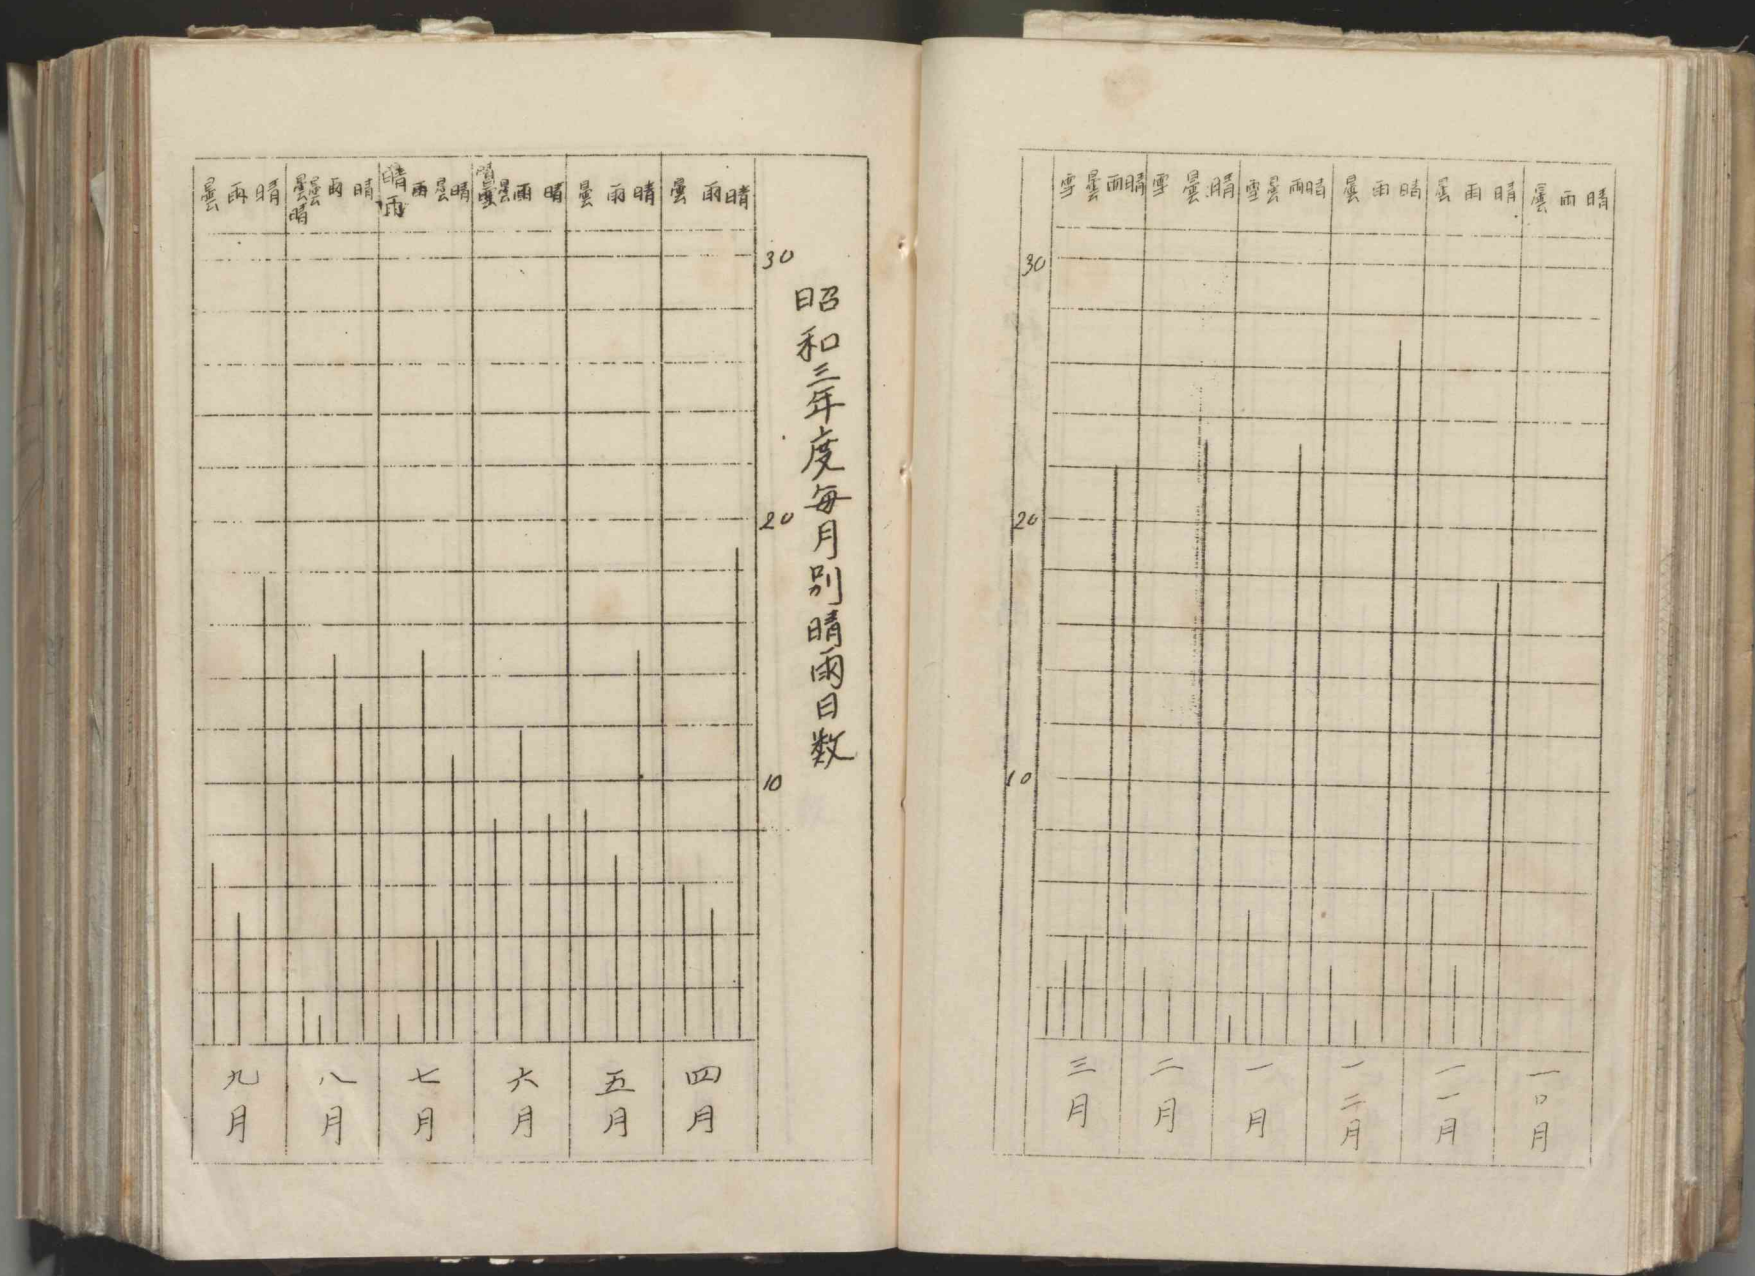 昭和三年度毎月別晴雨日数
30
20
10
晴 雨 曇
晴 雨 曇
晴 雨 曇
晴 曇 雨 晴雨
晴 雨 曇 曇晴
晴 雨 曇
四月
五月
六月
七月
八月
九月
30
20
10
晴 雨 曇
晴 雨 曇
晴 雨 曇
晴 雨 曇 雪
晴 曇 雪
晴 雨 曇 雪
一〇月
一一月
一二月
一月
二月
三月